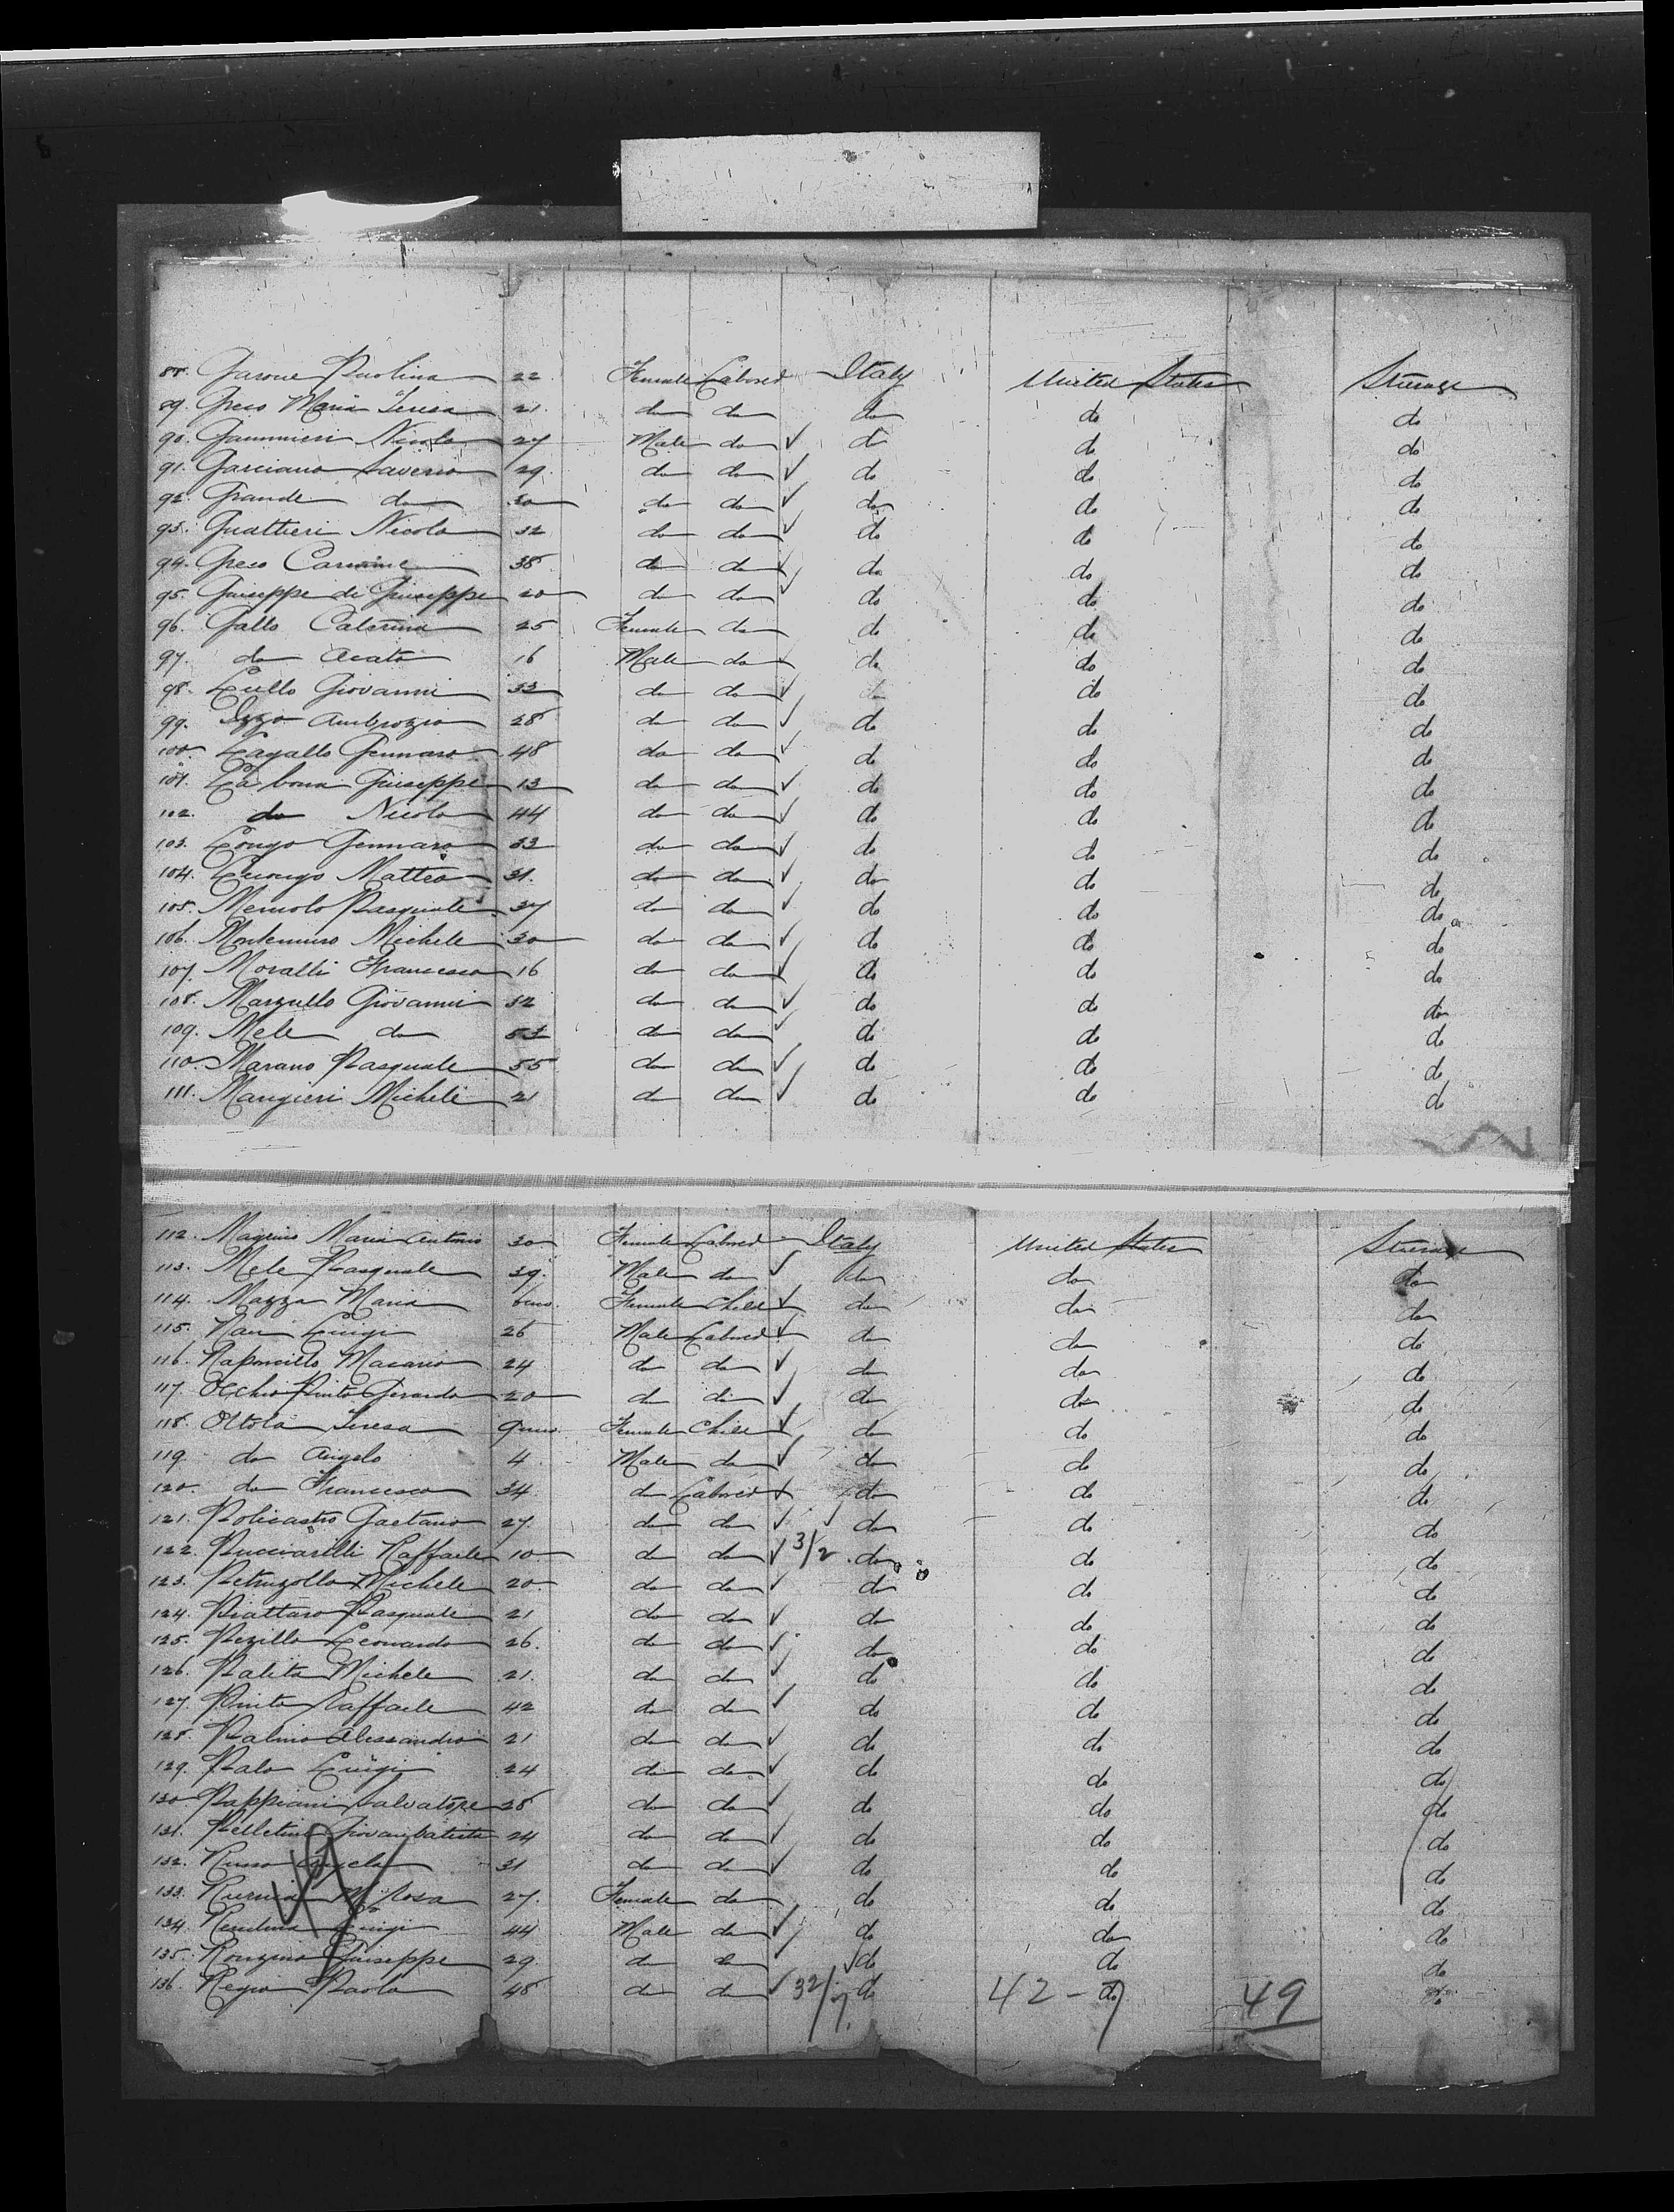 88. Garone Paolina 22 Female Labored Italy United States Steerage
89. Greco Maria Teresa 21. do do do do do
90. Gaummieri Nicola 27 Male do ✓ do do do
91. Garciano Saverio 29. do do ✓ do do do
92. Grande do 30 do do ✓ do do do
93. Gualtieri Nicola 32 do do ✓ do do do
94. Greco Carmine 38 do do ✓ do do do
95. Giuseppe di Giuseppe 20 do do ✓ do do do
96. Gallo Caterina 25 Female do do do do
97. do Acato 16 Male do do do do
98. Lullo Giovanni 33 do do ✓ do do do
99. Izzo Ambrozio 28 do do ✓ do do do
100. Lagallo Gennaro 48 do do ✓ do do do
101. La bona Giuseppe 13 do do ✓ do do do
102. do Nicola 44 do do ✓ do do do
103. Longo Gennaro 33 do do ✓ do do do
104. Luongo Matteo 31. do do ✓ do do do
105. Memolo Pasquale 37 do do ✓ do do do
106. Montemuro Michele 30 do do ✓ do do do
107. Moralli Francesco 16 do do ✓ do do do
108. Marzullo Giovanni 32 do do ✓ do do do
109. Mele do 53 do do ✓ do do do
110. Marano Pasquale 55 do do ✓ do do do
111. Mangieri Michele 21 do do ✓ do do do
112. Maria Antonio 30 Female Labored Italy United States Steerage
113. Mele Pasquale 39. Male do ✓ do do do
114. Mazza Maria 6mo. Female Child ✓ do do do
115. Nau Luigi 26 Male Labored ✓ do do do
116. Naponcillo Macario 24 do do ✓ do do do
117. Occhio Pinto Gerardo 20 do do ✓ do do do
118. Ottola Teresa 9mo. Female Child ✓ do do do
119. do Angelo 4 Male do ✓ do do do
120. do Francesco 34. do Labored ✓ do do do
121. Policastro Gaetano 27. do do ✓ ✓ do do do
122. Pucciarelli Raffaele 10 do do ✓ 3/2 do do do
123. Petruzollo Michele 20. do do ✓ do do do
124. Piattaro Pasquale 21 do do ✓ do do do
125. Pezillo Leonardo 26. do do ✓ do do do
126. Palita Michele 21. do do ✓ do do do
127. Pinto Raffaele 42 do do ✓ do do do
128. Palmo Alessandro 21 do do ✓ do do do
129. Palo Luigi 24 do do ✓ do do do
130. Pappiani Salvatore 28 do do ✓ do do do
131. Pelletini Giovanbatista 24 do do ✓ do do do
132. Russo Angelo 31 do do ✓ do do do
133. M. Rosa 27. Female do do do do
134. Luigi 44 Male do ✓ do do do
135. Ronzino Giuseppe 29 do do ✓ ✓ do do do
136. Regio Paolo 48 do do ✓ 32/7. do 42 - 7 do 49 do